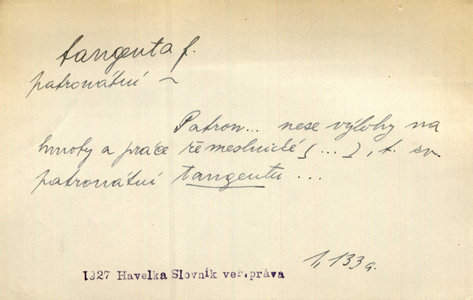 tangenta f.
patronátní ~
Patron... nese výlohy na
hmoty a práce řemeslnické [...], t. sv.
patronátní tangentu ...
1, 133a.
1927 Havelka Slovník veř.práva